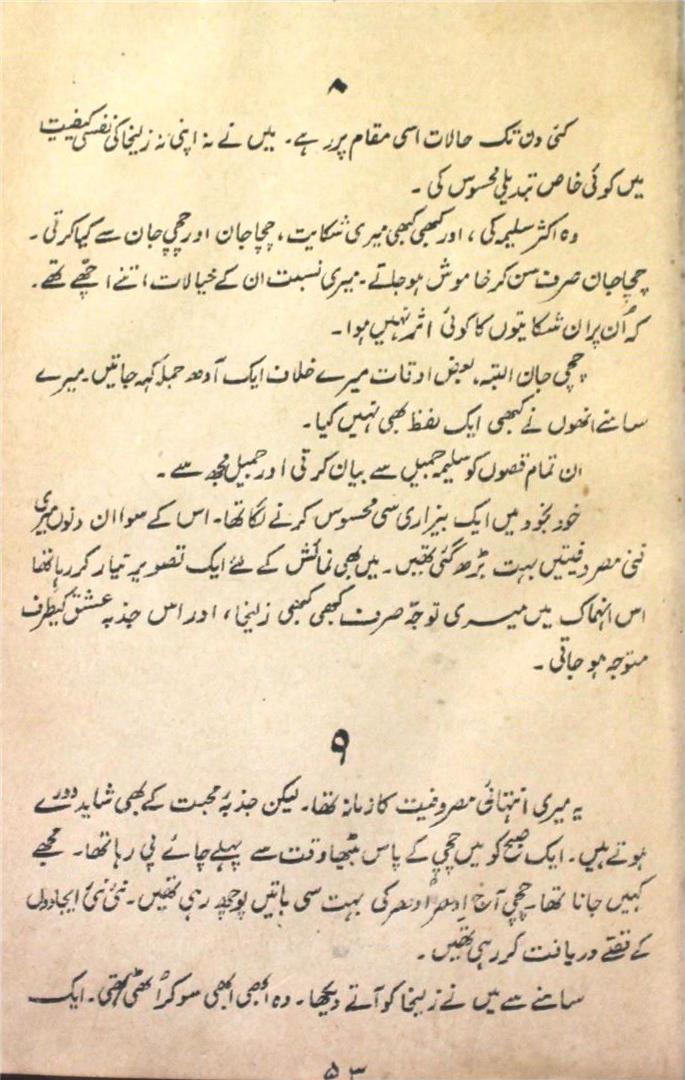 ۸
کئی دن تک حالات اسی مقام پر رہے۔ میں نے نہ اپنی نہ زلیخا کی نفسی کیفیت
میں کوئی خاص تبدیلی محسوس کی۔
وہ اکثر سلیمہ کی، اور کبھی کبھی میری شکایت، چچا جان اور چچی جان سے کیا کرتی۔
چچا جان صرف سن کر خاموش ہو جاتے۔ میری نسبت ان کے خیالات، اتنے اچھے تھے۔
کہ اُن پر ان شکایتوں کا کوئی اثر نہیں ہوا۔
چچی جان البتہ، بعض اوقات میرے خلاف ایک آدھ جملہ کہہ جاتیں۔ میرے
سامنے انھوں نے کبھی ایک لفظ بھی نہیں کہا۔
ان تمام قصوں کو سلیمہ جمیل سے بیان کرتی اور جمیل مجھ سے۔
خود بخود میں ایک بیزاری سی محسوس کرنے لگا تھا۔ اس کے سوا ان دنوں میری
فنی مصروفیتیں بہت بڑھ گئی تھیں۔ میں بھی نمائش کے لئے ایک تصویر تیار کر رہا تھا
اس انہماک میں میری توجہ صرف کبھی کبھی زلیخا، اور اس جذبہ عشق کیطرف
متوجہ ہو جاتی۔
۹
یہ میری انتہائی مصروفیت کا زمانہ تھا۔ لیکن جذبۂ محبت کے بھی شاید دورے
ہوتے ہیں۔ ایک صبح کو میں چچی کے پاس بیٹھا وقت سے پہلے چائے پی رہا تھا۔ مجھے
کہیں جانا تھا۔ چچی آج اِدھر اُدھر کی بہت سی باتیں پوچھ رہی تھیں۔ نئی نئی ایجادوں
کے قصے دریافت کر رہی تھیں۔
سامنے سے میں نے زلیخا کو آتے دیکھا۔ وہ ابھی ابھی سو کر اُٹھی تھی۔ ایک
۵۳